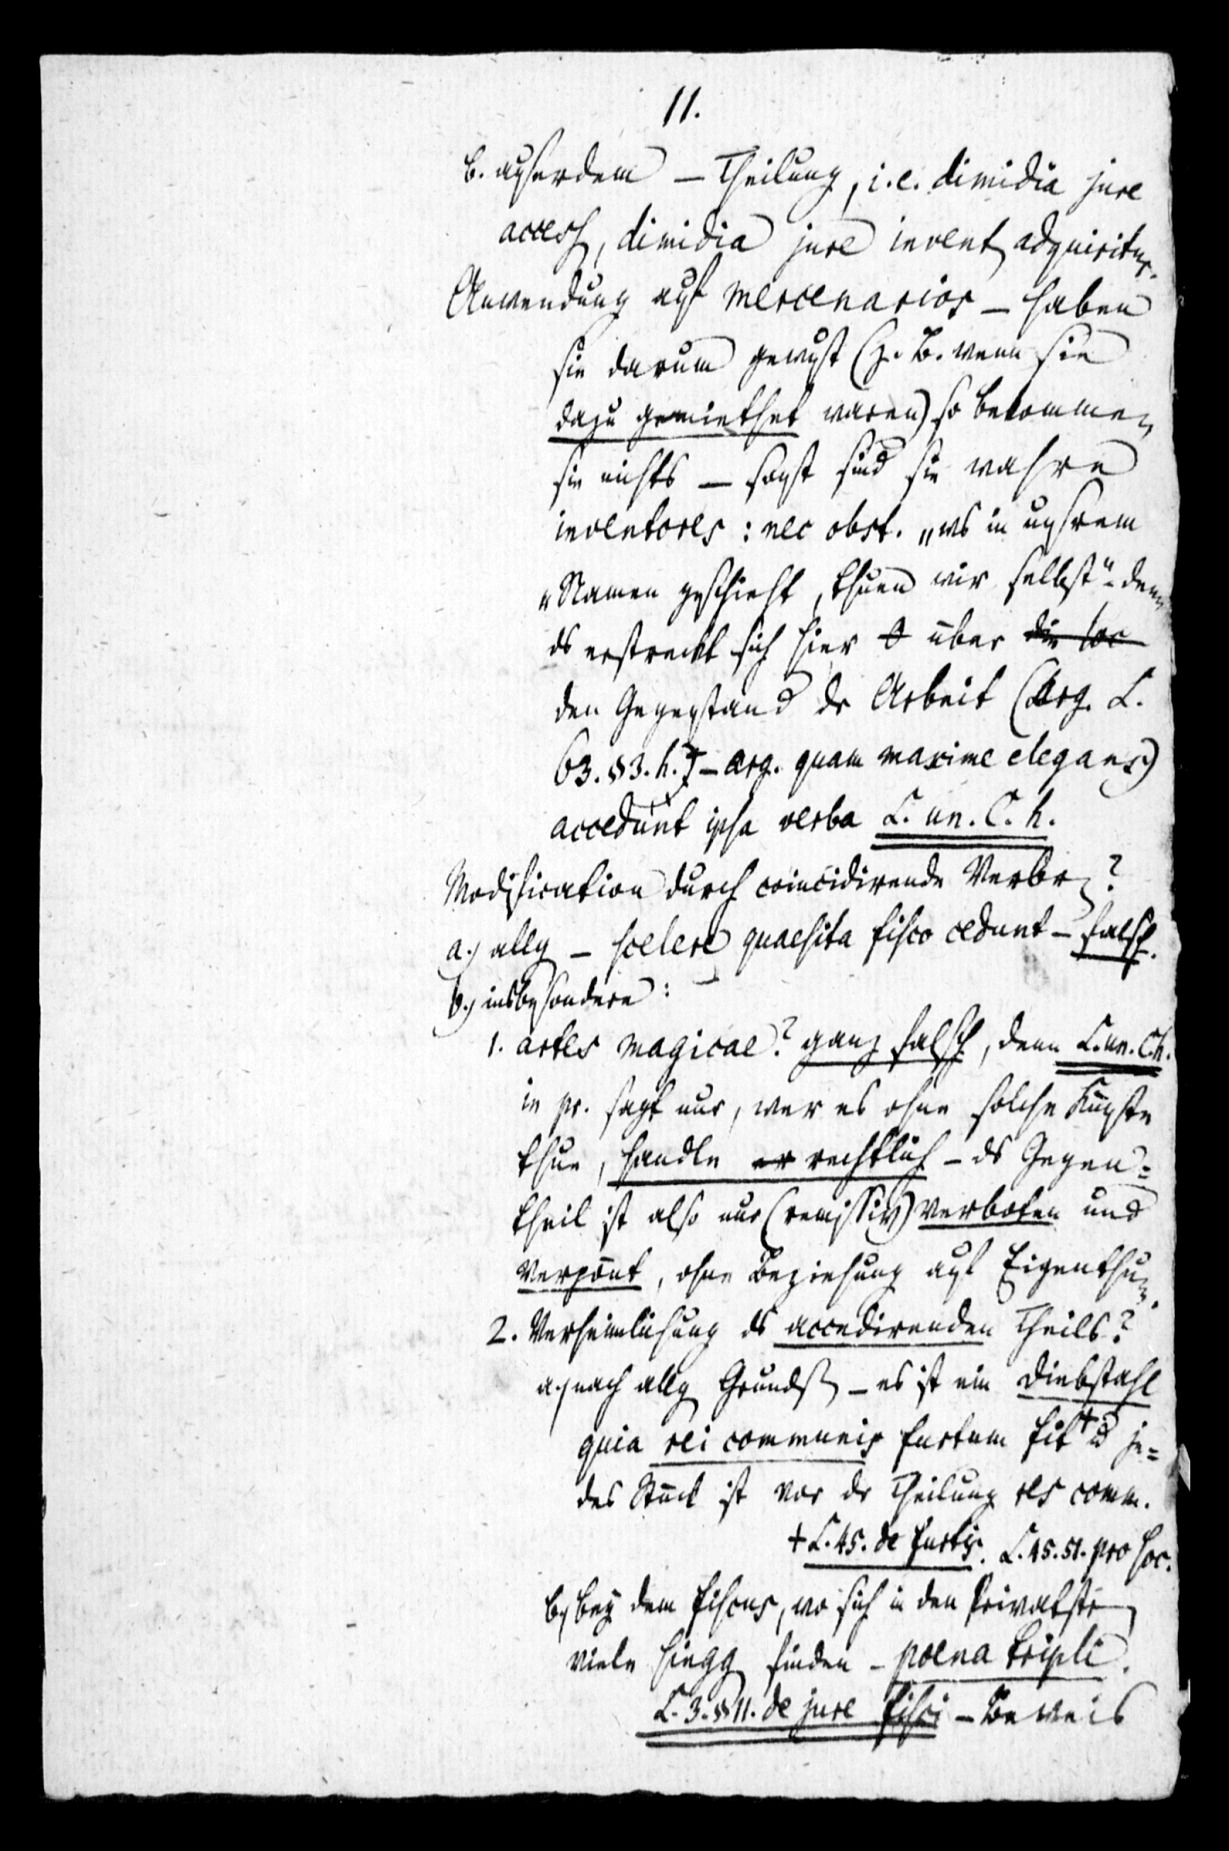 11.
b. außerdem – Theilung, i.e. dimidia jure
access, dimidia jure invent adquiritur.
Anwendung auf mercenarios – haben
sie darum gewußt (z. B. wenn sie
dazu gemiethet waren) so bekommen
sie nichts – sonst sind sie wahre
inventores : nec obst. „was in unsrem
„Namen geschieht, thuen wir selbst“ – denn
ds erstreckt sich hier 0 über die loc
den Gegenstand dr Arbeit (Arg. L.
63. §3. h. t – arg. quam maxime elegans)
accedunt ipsa verba L. un. C. h.
Modification durch coincidirende Verbr?
a.) allg – scelere quaesita fisco cedunt – falsch.
b.) insbesondere :
1. artes magicae? ganz falsch, denn L. un. C. h.
in pr. sagt nur, wer es ohne solche Künste
thue, handle er rechtlich – ds Gegen=
theil ist also nur (remissiv) verboten und
verpönt, ohne Beziehung auf Eigenthum.
2. Verheimlichung ds accedirenden Theils?
a.) nach allg Grunds – es ist ein Diebstahl
quia rei communis furtum fit + u je=
des Stück ist vor dr Theilung res comm.
+ L. 45. de furtis. L. 45. 51. pro soc.
b.) bey dem fiscus, wo sich in den Privatstr
viele hingg finden – poena tripli.
L. 3. § 11. de jure fisci – Beweis